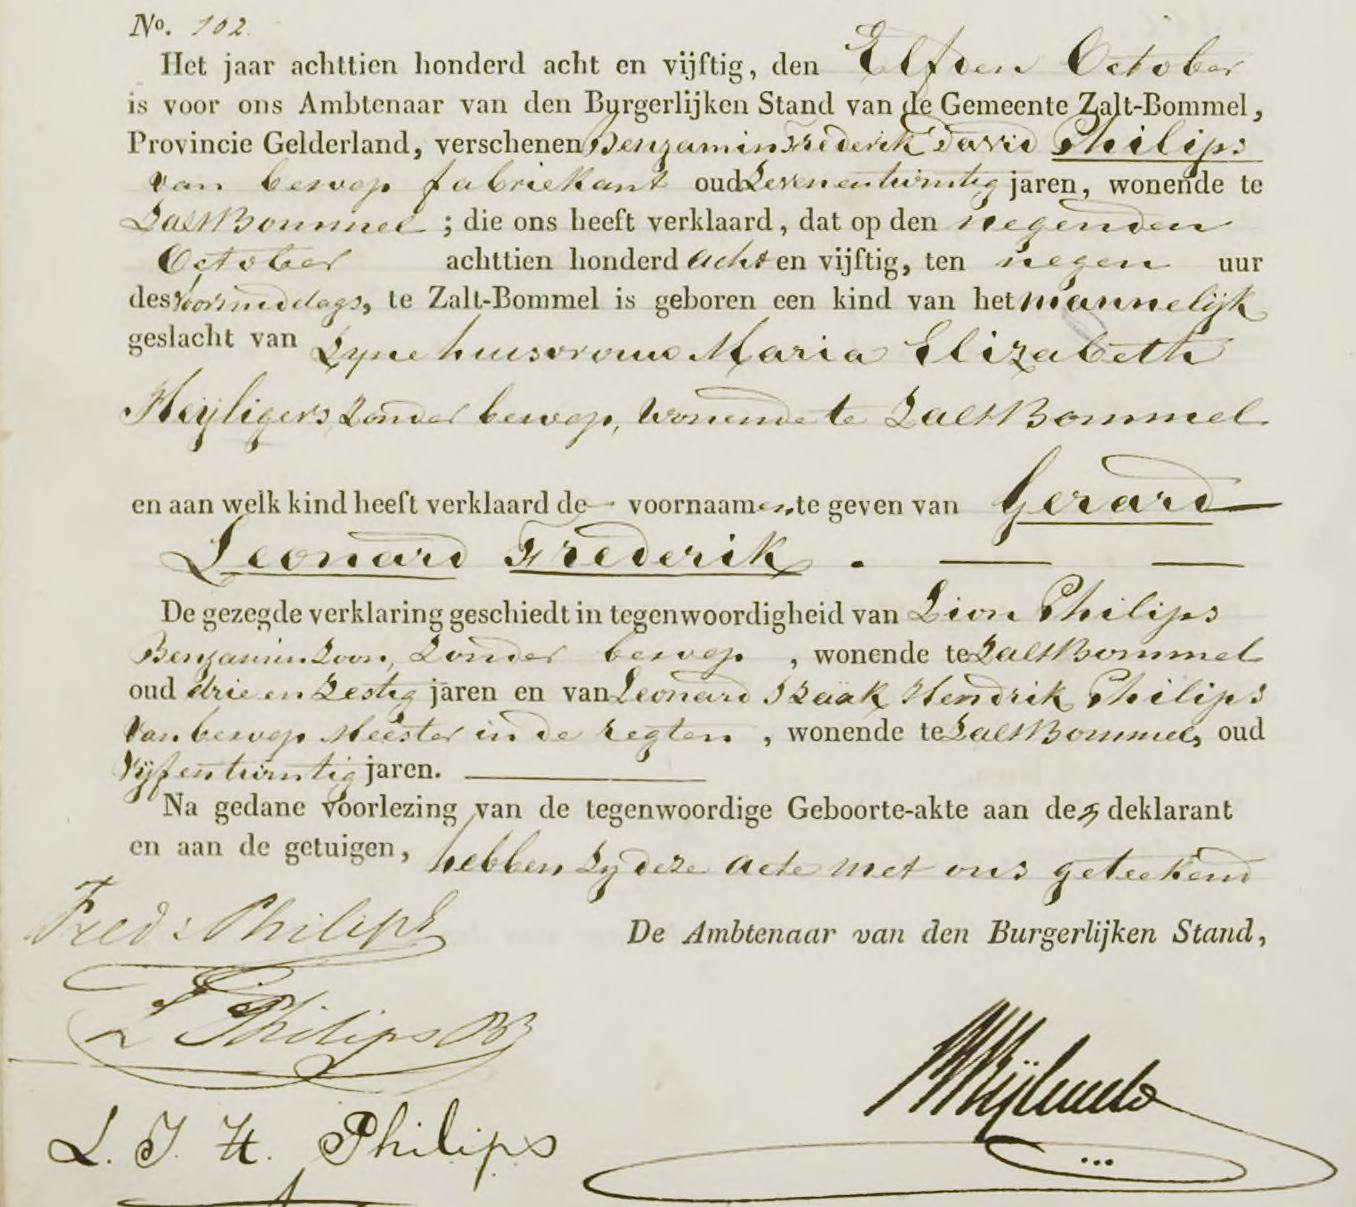 No. 102.
Het jaar achttien honderd acht en vijftig, den Elfden October
is voor ons Ambtenaar van den Burgerlijken Stand van de Gemeente Zalt-Bommel,
Provincie Gelderland, verschenen Benjamin Frederik David Philips
van beroep fabriekant oud Zevenentwintig jaren, wonende te
ZaltBommel ; die ons heeft verklaard, dat op den negenden
October achttien honderd acht en vijftig, ten negen uur
des voormiddags, te Zalt-Bommel is geboren een kind van het mannelijk
geslacht van Zyne huisvrouw Maria Elizabeth
Heyligers, Zonder beroep, Wonende te ZaltBommel
en aan welk kind heeft verklaard de voornaamen te geven van Gerard
Leonard Frederik.
De gezegde verklaring geschiedt in tegenwoordigheid van Lion Philips
Benjamin Zoon, Zonder beroep, wonende te ZaltBommel
oud drie en Zestig jaren en van Leonard Izaäk Hendrik Philips
Van beroep Meester in de regten, wonende te ZaltBommel, oud
Vijfentwintig jaren.
Na gedane voorlezing van de tegenwoordige Geboorte-akte aan den deklarant
en aan de getuigen, hebben Zy deze acte met ons geteekend
Fred: Philips
De Ambtenaar van den Burgerlijken Stand,
L Philips BZ
L. I. H. Philips